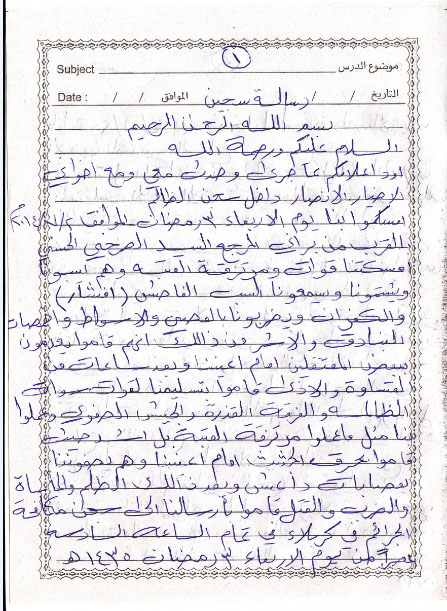 ١
Subject موضوع الدرس
Date : / / الموافق / / التاريخ
رسالة سجين
بسم الله الرحمن الرحيم
السلام عليكم ورحمة الله
اود اعلامكم ما جرى وحدث معي ومع اخواني
الاخيار الانصار داخل سجن الظالم
امسكوا بنا يوم الاربعاء ٣ رمضان الموافق
بالقرب من براني المرجع السيد الصرخي الحسني
امسكتنا قوات ومرتزقة الفتنة وهم يسبونا
ويشتمونا ويسمعونا السب الفاحش (افشار)
والكفريات ويضربونا بالعصي والاسواط واخمصات
البنادق والاشر من ذلك انهم قاموا يرمون
بعض المعتقلين امام اعيننا وبعد ساعات من
القساوة والاذى قاموا بتسليمنا لقوات سوات
الظالمة والفرقة القذرة والجيش الصفوي وعملوا
بنا مثل ما عملوا مرتزقة الفتنة بل اشد حيث
قاموا بحرق الجثث امام اعيننا وهم يصفوننا
بعصابات داعش وبعد ذلك الظلم والمأساة
والضرب والقتل قاموا بأرسالنا الى سجن مكافحة
الجرائم في كربلاء في تمام الساعة السادسة
عصراً من يوم الاربعاء ٣ رمضان ١٤٣٥ هـ